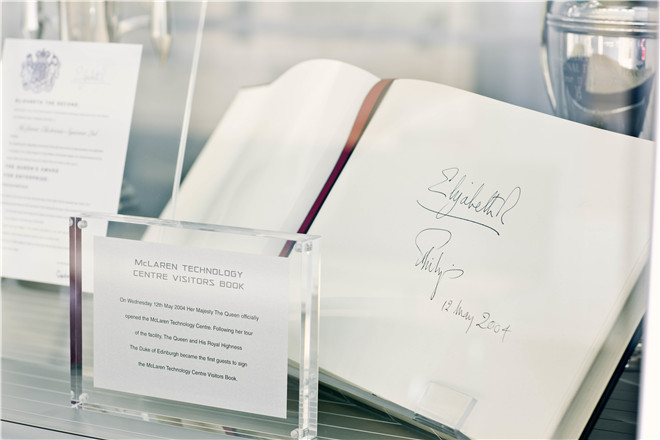 ELIZABETH THE SECOND
THE QUEEN'S AWARD
FOR ENTERPRISE
McLAREN TECHNOLOGY
CENTRE VISITORS BOOK
On Wednesday 12th May 2004 Her Majesty The Queen officially
opened the McLaren Technology Centre. Following her tour
of the facility, The Queen and His Royal Highness
The Duke of Edinburgh became the first guests to sign
the McLaren Technology Centre Visitors Book.
Elizabeth R
Philip
12 May 2004